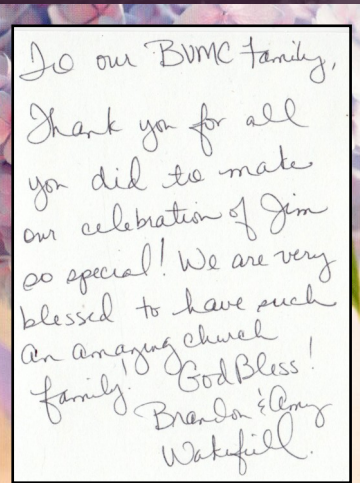 To our BUMC family,
Thank you for all
you did to make
our celebration of Jim
so special! We are very
blessed to have such
an amazing church
family! God Bless!
Brandon & Amy
Wakefield